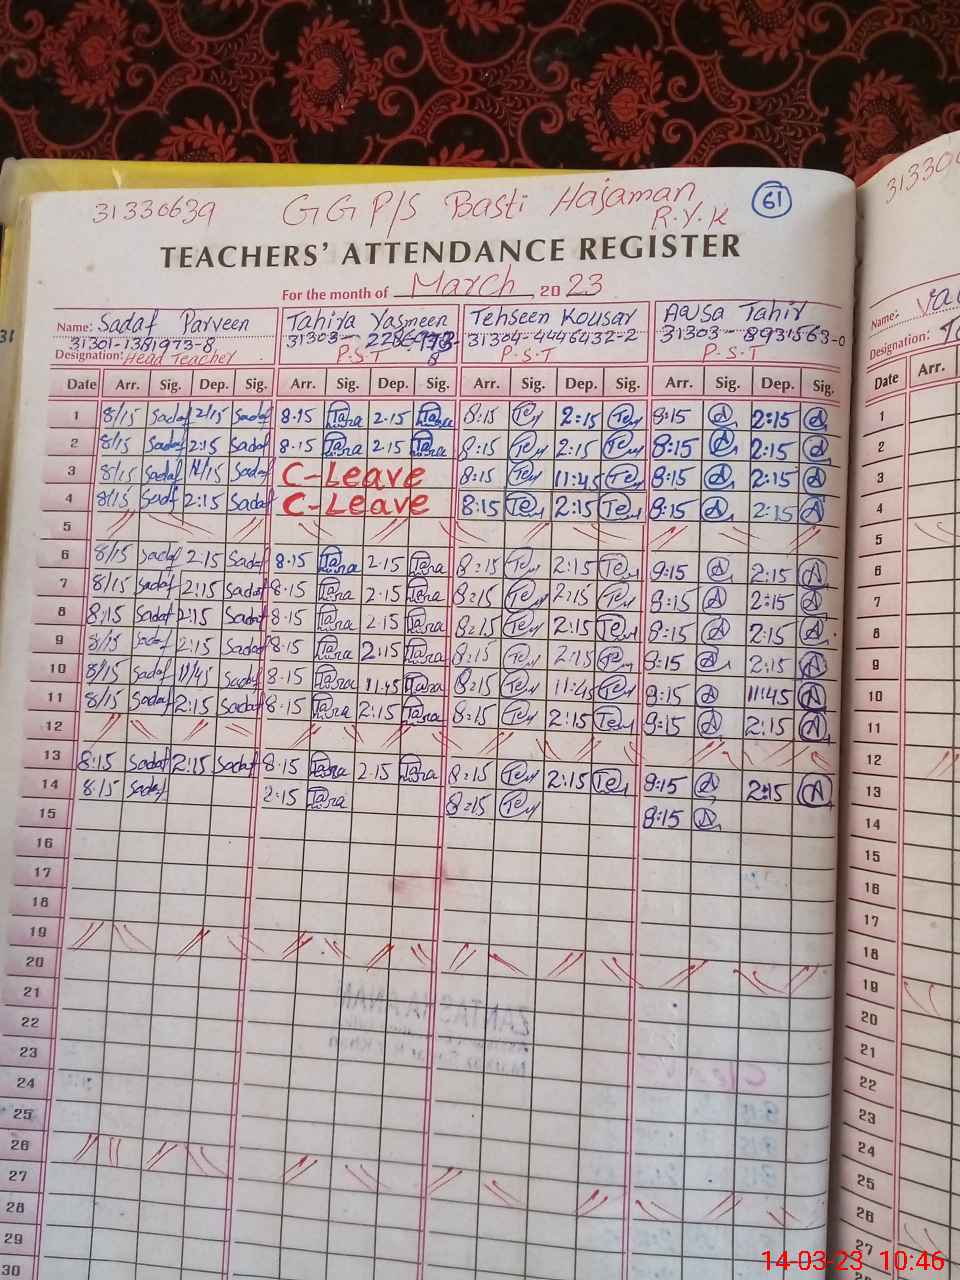 31330639 GGP/S Basti Hajaman 61
R.Y.K
31330
TEACHERS' ATTENDANCE REGISTER
For the month of March 2023
Name: Sadaf Parveen Tahira Yasmeen Tehseen Kousar Aqsa Tahir
31301-1351973-8 31303- 31304-4446432-2 31303-8931563-0
Designation: Head Teacher P.S.T P.S.T P.S.T
Name:
Designation:
Date Arr. Sig. Dep. Sig. Arr. Sig. Dep. Sig. Arr. Sig. Dep. Sig. Arr. Sig. Dep. Sig. Date Arr.
1 8/15 Sadaf 2/15 Sadaf 8.15 Tara 2.15 Tara 8:15 Te 2:15 Te 8:15 A 2:15 A 1
2 8/15 Sadaf 2:15 Sadaf 8.15 Tara 2.15 Tara 8:15 Te 2:15 Te 8:15 A 2:15 A 2
3 8/15 Sadaf 11/15 Sadaf C-Leave 8:15 Te 11:45 Te 8:15 A 2:15 A 3
4 8/15 Sadf 2:15 Sadaf C-Leave 8:15 Te 2:15 Te 8:15 A 2:15 A 4
5 5
6 8/15 Sadaf 2:15 Sadaf 8.15 Tara 2.15 Tara 8:15 Te 2:15 Te 8:15 A 2:15 A 6
7 8/15 Sadaf 2:15 Sadaf 8.15 Tara 2.15 Tara 8:15 Te 2:15 Te 8:15 A 2:15 A 7
8 8:15 Sadaf 2:15 Sadaf 8.15 Tara 2.15 Tara 8:15 Te 2:15 Te 8:15 A 2:15 A 8
9 8/15 Sadaf 2:15 Sadaf 8.15 Tara 2:15 Tara 8:15 Te 2:15 Te 8:15 A 2:15 A 9
10 8/15 Sadaf 11/45 Sadaf 8.15 Tara 11.45 Tara 8:15 Te 11:45 Te 8:15 A 11:45 A 10
11 8/15 Sadaf 2:15 Sadaf 8.15 Tara 2:15 Tara 8:15 Te 2:15 Te 8:15 A 2:15 A 11
12 12
13 8:15 Sadaf 2:15 Sadaf 8.15 Tara 2.15 Tara 8:15 Te 2:15 Te 8:15 A 2:15 A 13
14 8:15 Sadaf 2:15 Tara 8:15 Te 8:15 A 14
15 15
16 16
17 17
18 18
19 19
20 20
21 21
22 22
23 23
24 24
25 25
26 26
27 27
28
29
30
14-03-23 10:46